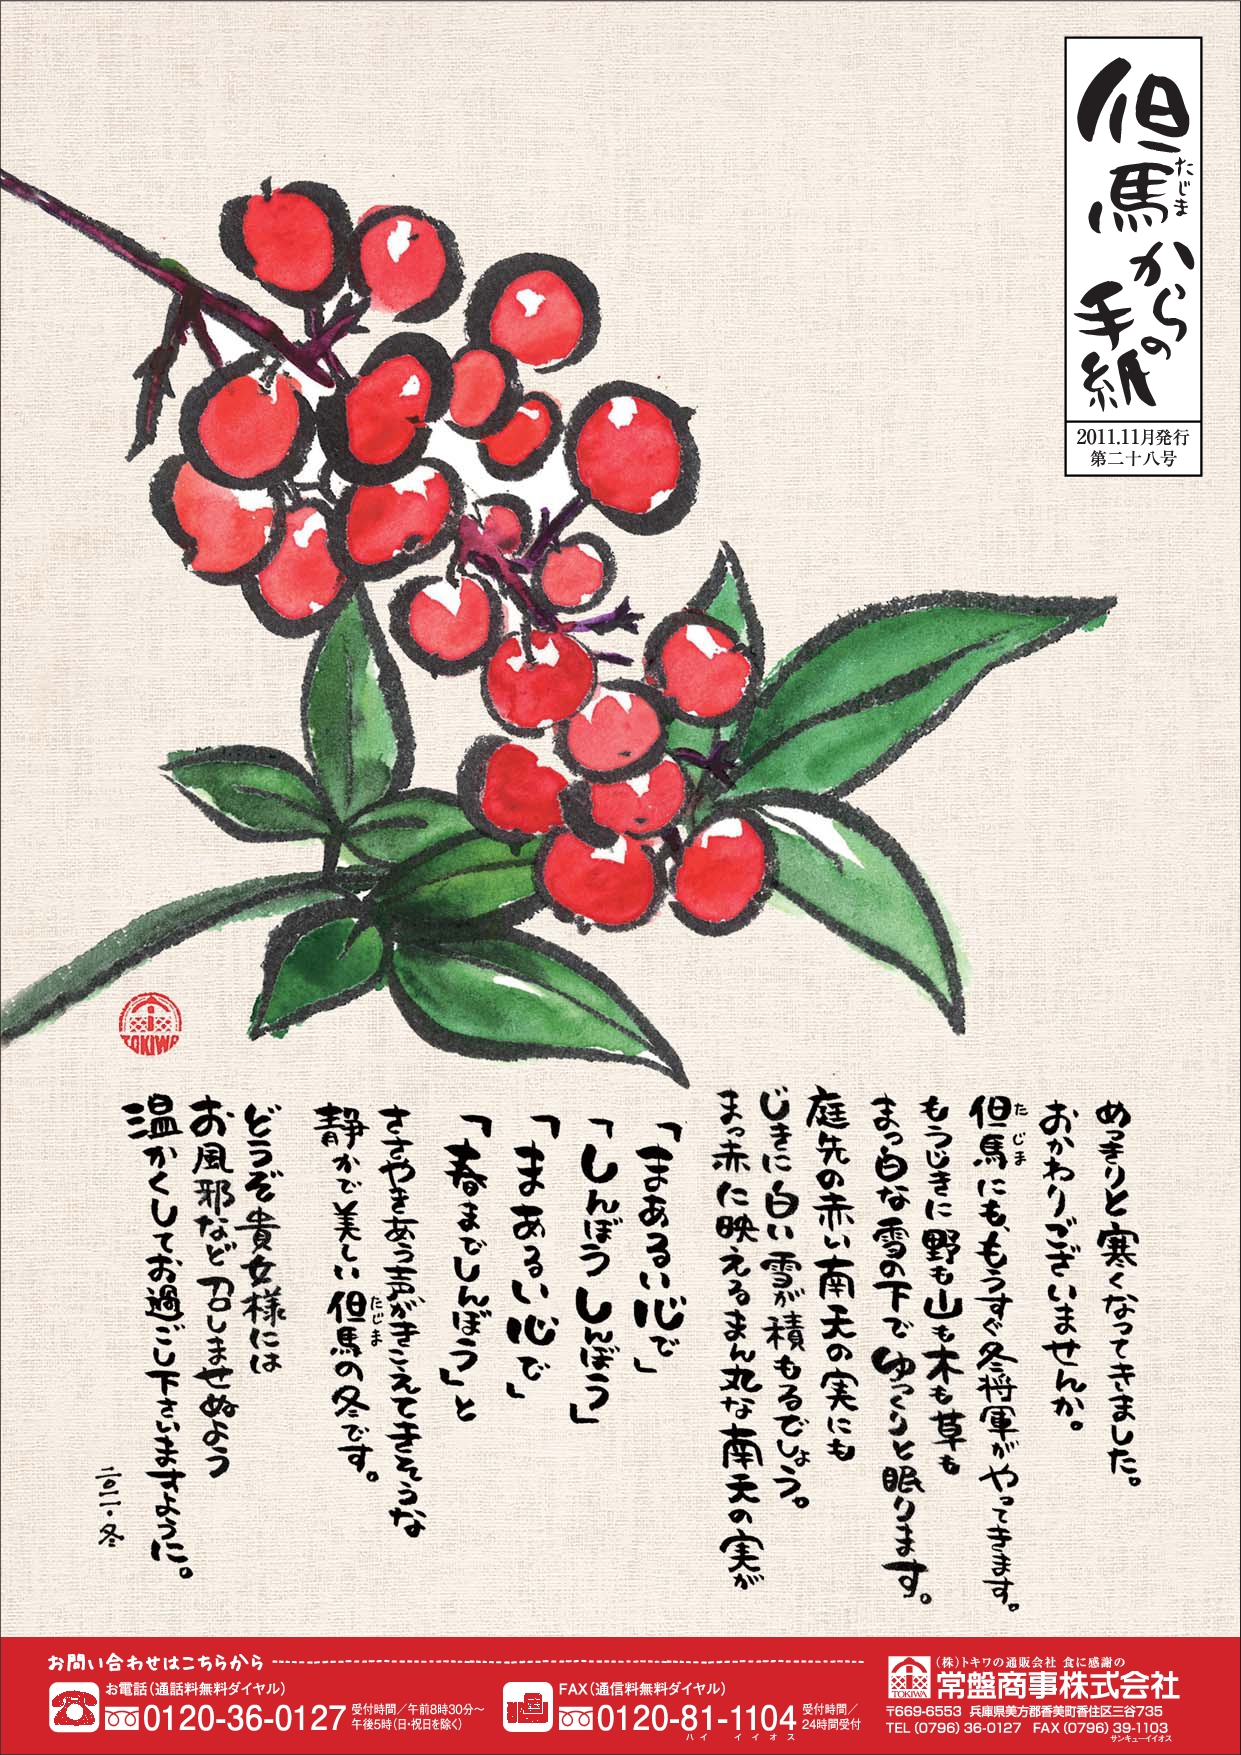 但馬からの手紙
たじま
2011.11月発行
第二十八号
めっきりと寒くなってきました。
おかわりございませんか。
但馬にも、もうすぐ冬将軍がやってきます。
たじま
もうじきに野も山も木も草も
まっ白な雪の下でゆっくりと眠ります。
庭先の赤い南天の実にも
じきに白い雪が積もるでしょう。
まっ赤に映えるまん丸な南天の実が
「まあるい心で」
「しんぼうしんぼう」
「まあるい心で」
「春までしんぼう」と
ささやきあう声がきこえてきそうな
静かで美しい但馬の冬です。
たじま
どうぞ貴女様には
お風邪など召しませぬよう
温かくしてお過ごし下さいますように。
二〇一一・冬
TOKIWA
お問い合わせはこちらから
お電話（通話料無料ダイヤル）
0120-36-0127
受付時間／午前8時30分～
午後5時（日・祝日を除く）
FAX（通信料無料ダイヤル）
0120-81-1104
ハイ イイオス
受付時間／
24時間受付
TOKIWA
（株）トキワの通販会社 食に感謝の
常盤商事株式会社
〒669-6553 兵庫県美方郡香美町香住区三谷735
TEL (0796) 36-0127 FAX (0796) 39-1103
サンキューイイオス